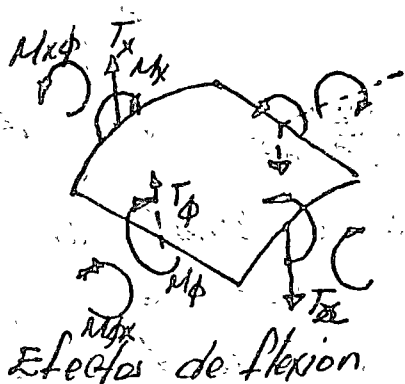 Mxφ
Tx
Mx
Tφ
Mφ
Mφx
Tx
Efectos de flexion